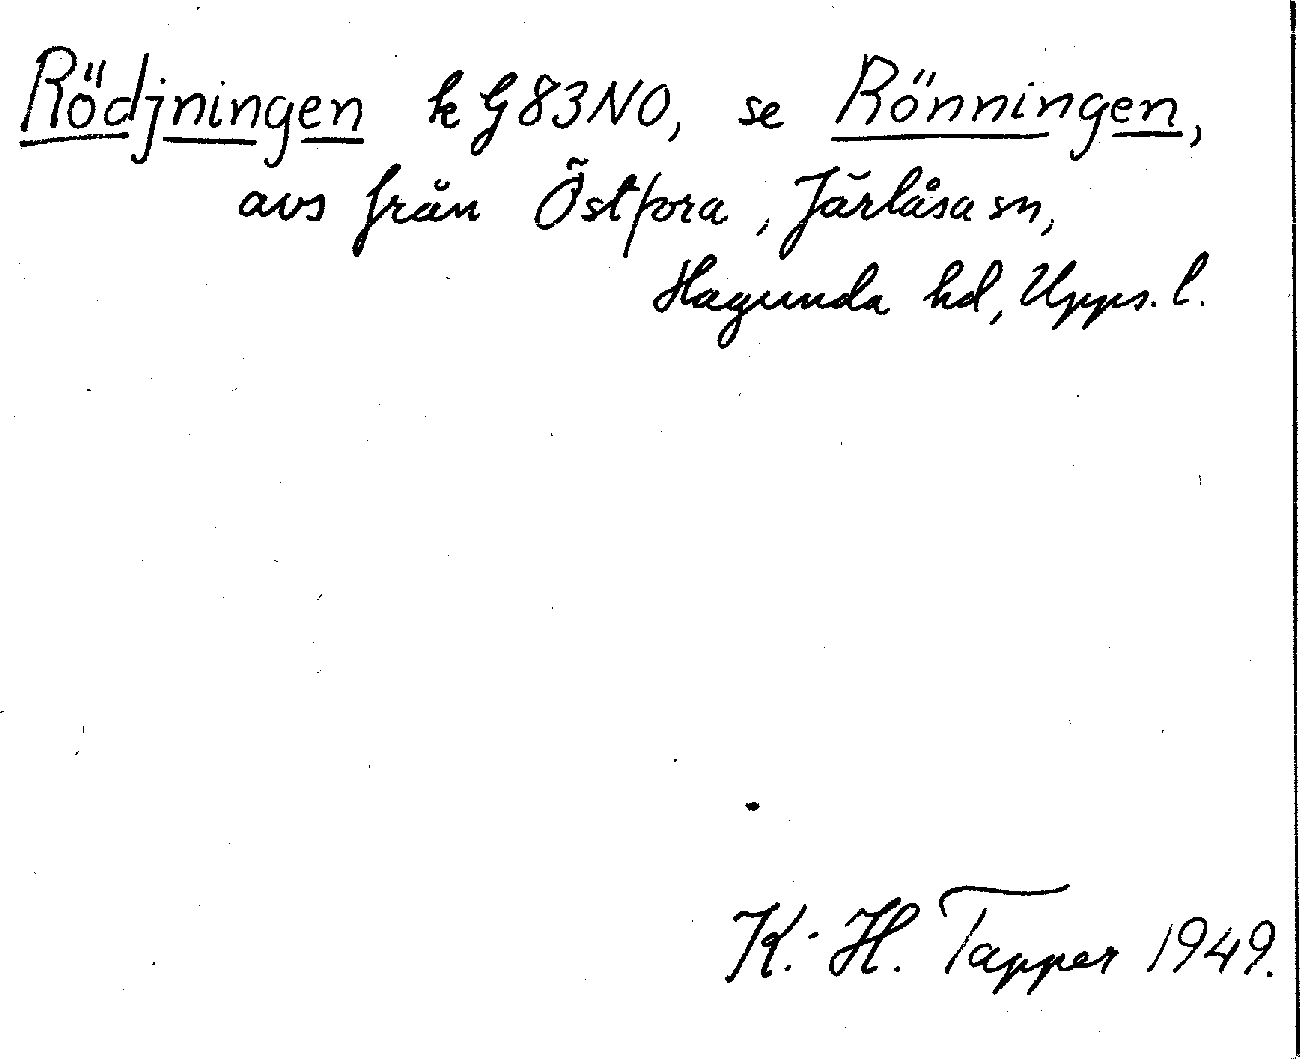 Rödjningen k G83NO, se Rönningen,
avs från Östfora, Järlåsa sn,
Hagunda hd, Upps. l.
K.-H. Tapper 1949.